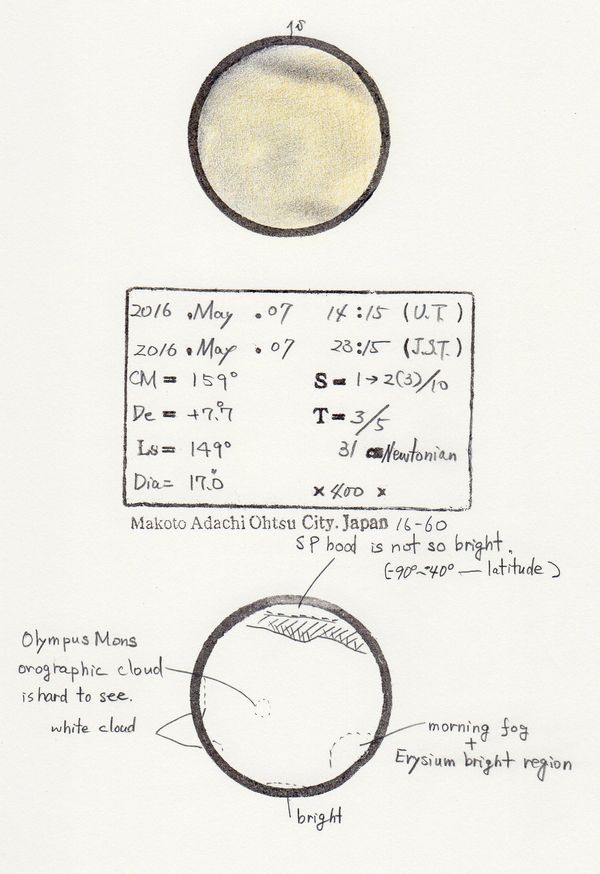 1S
2016 . May . 07 14:15 (U.T.)
2016 . May . 07 23:15 (J.S.T.)
CM = 159° S = 1→2(3)/10
De = +7.°7 T = 3/5
Ls = 149° 31 cm Newtonian
Dia = 17."0 × 400 ×
Makoto Adachi Ohtsu City. Japan 16-60
SP hood is not so bright.
(-90°~-40° — latitude)
Olympus Mons
orographic cloud
is hard to see.
white cloud
morning fog
+
Erysium bright region
bright